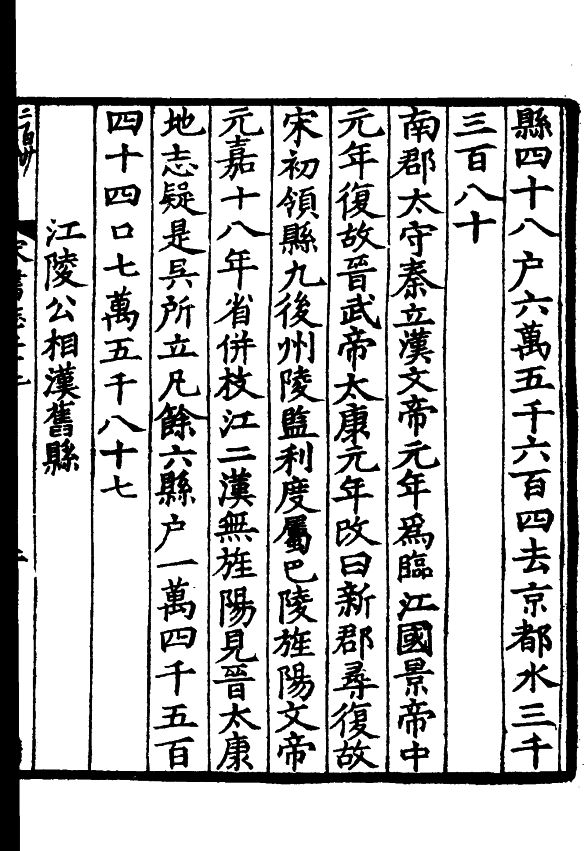 縣四十八户六萬五千六百四去京都水三千
三百八十
南郡太守秦立漢文帝元年爲臨江國景帝中
元年復故晉武帝太康元年改曰新郡尋復故
宋初領縣九後州陵監利度屬巴陵旌陽文帝
元嘉十八年省併枝江二漢無旌陽見晉太康
地志疑是吳所立凡餘六縣户一萬四千五百
四十四口七萬五千八十七
江陵公相漢舊縣